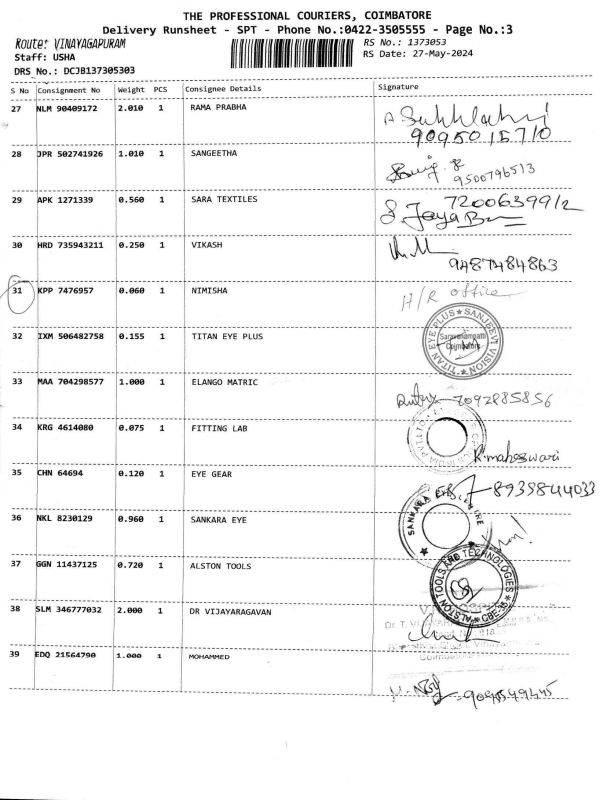 THE PROFESSIONAL COURIERS, COIMBATORE
Delivery Runsheet - SPT - Phone No.:0422-3505555 - Page No.:3
Route: VINAYAGAPURAM
Staff: USHA
DRS No.: DCJB137305303
RS No.: 1373053
RS Date: 27-May-2024
S No Consignment No Weight PCS Consignee Details Signature
27 NLM 90409172 2.010 1 RAMA PRABHA
9095015710
28 JPR 502741926 1.010 1 SANGEETHA
9500796513
29 APK 1271339 0.560 1 SARA TEXTILES
7200639912
S. Jaya
30 HRD 735943211 0.250 1 VIKASH
9487484863
31 KPP 7476957 0.060 1 NIMISHA H/R office
32 IXM 506482758 0.155 1 TITAN EYE PLUS
TITAN EYE PLUS ★ SANJEEVI VISION ★
Saravanampatti
Coimbatore
33 MAA 704298577 1.000 1 ELANGO MATRIC
7092885856
34 KRG 4614080 0.075 1 FITTING LAB
K. maheswari
35 CHN 64694 0.120 1 EYE GEAR
8935844033
36 NKL 8230129 0.960 1 SANKARA EYE
SANKARA EYE
37 GGN 11437125 0.720 1 ALSTON TOOLS
ALSTON TOOLS AND TECHNOLOGIES ★ CBE-35 ★
38 SLM 346777032 2.000 1 DR VIJAYARAGAVAN
39 EDQ 21564790 1.000 1 MOHAMMED